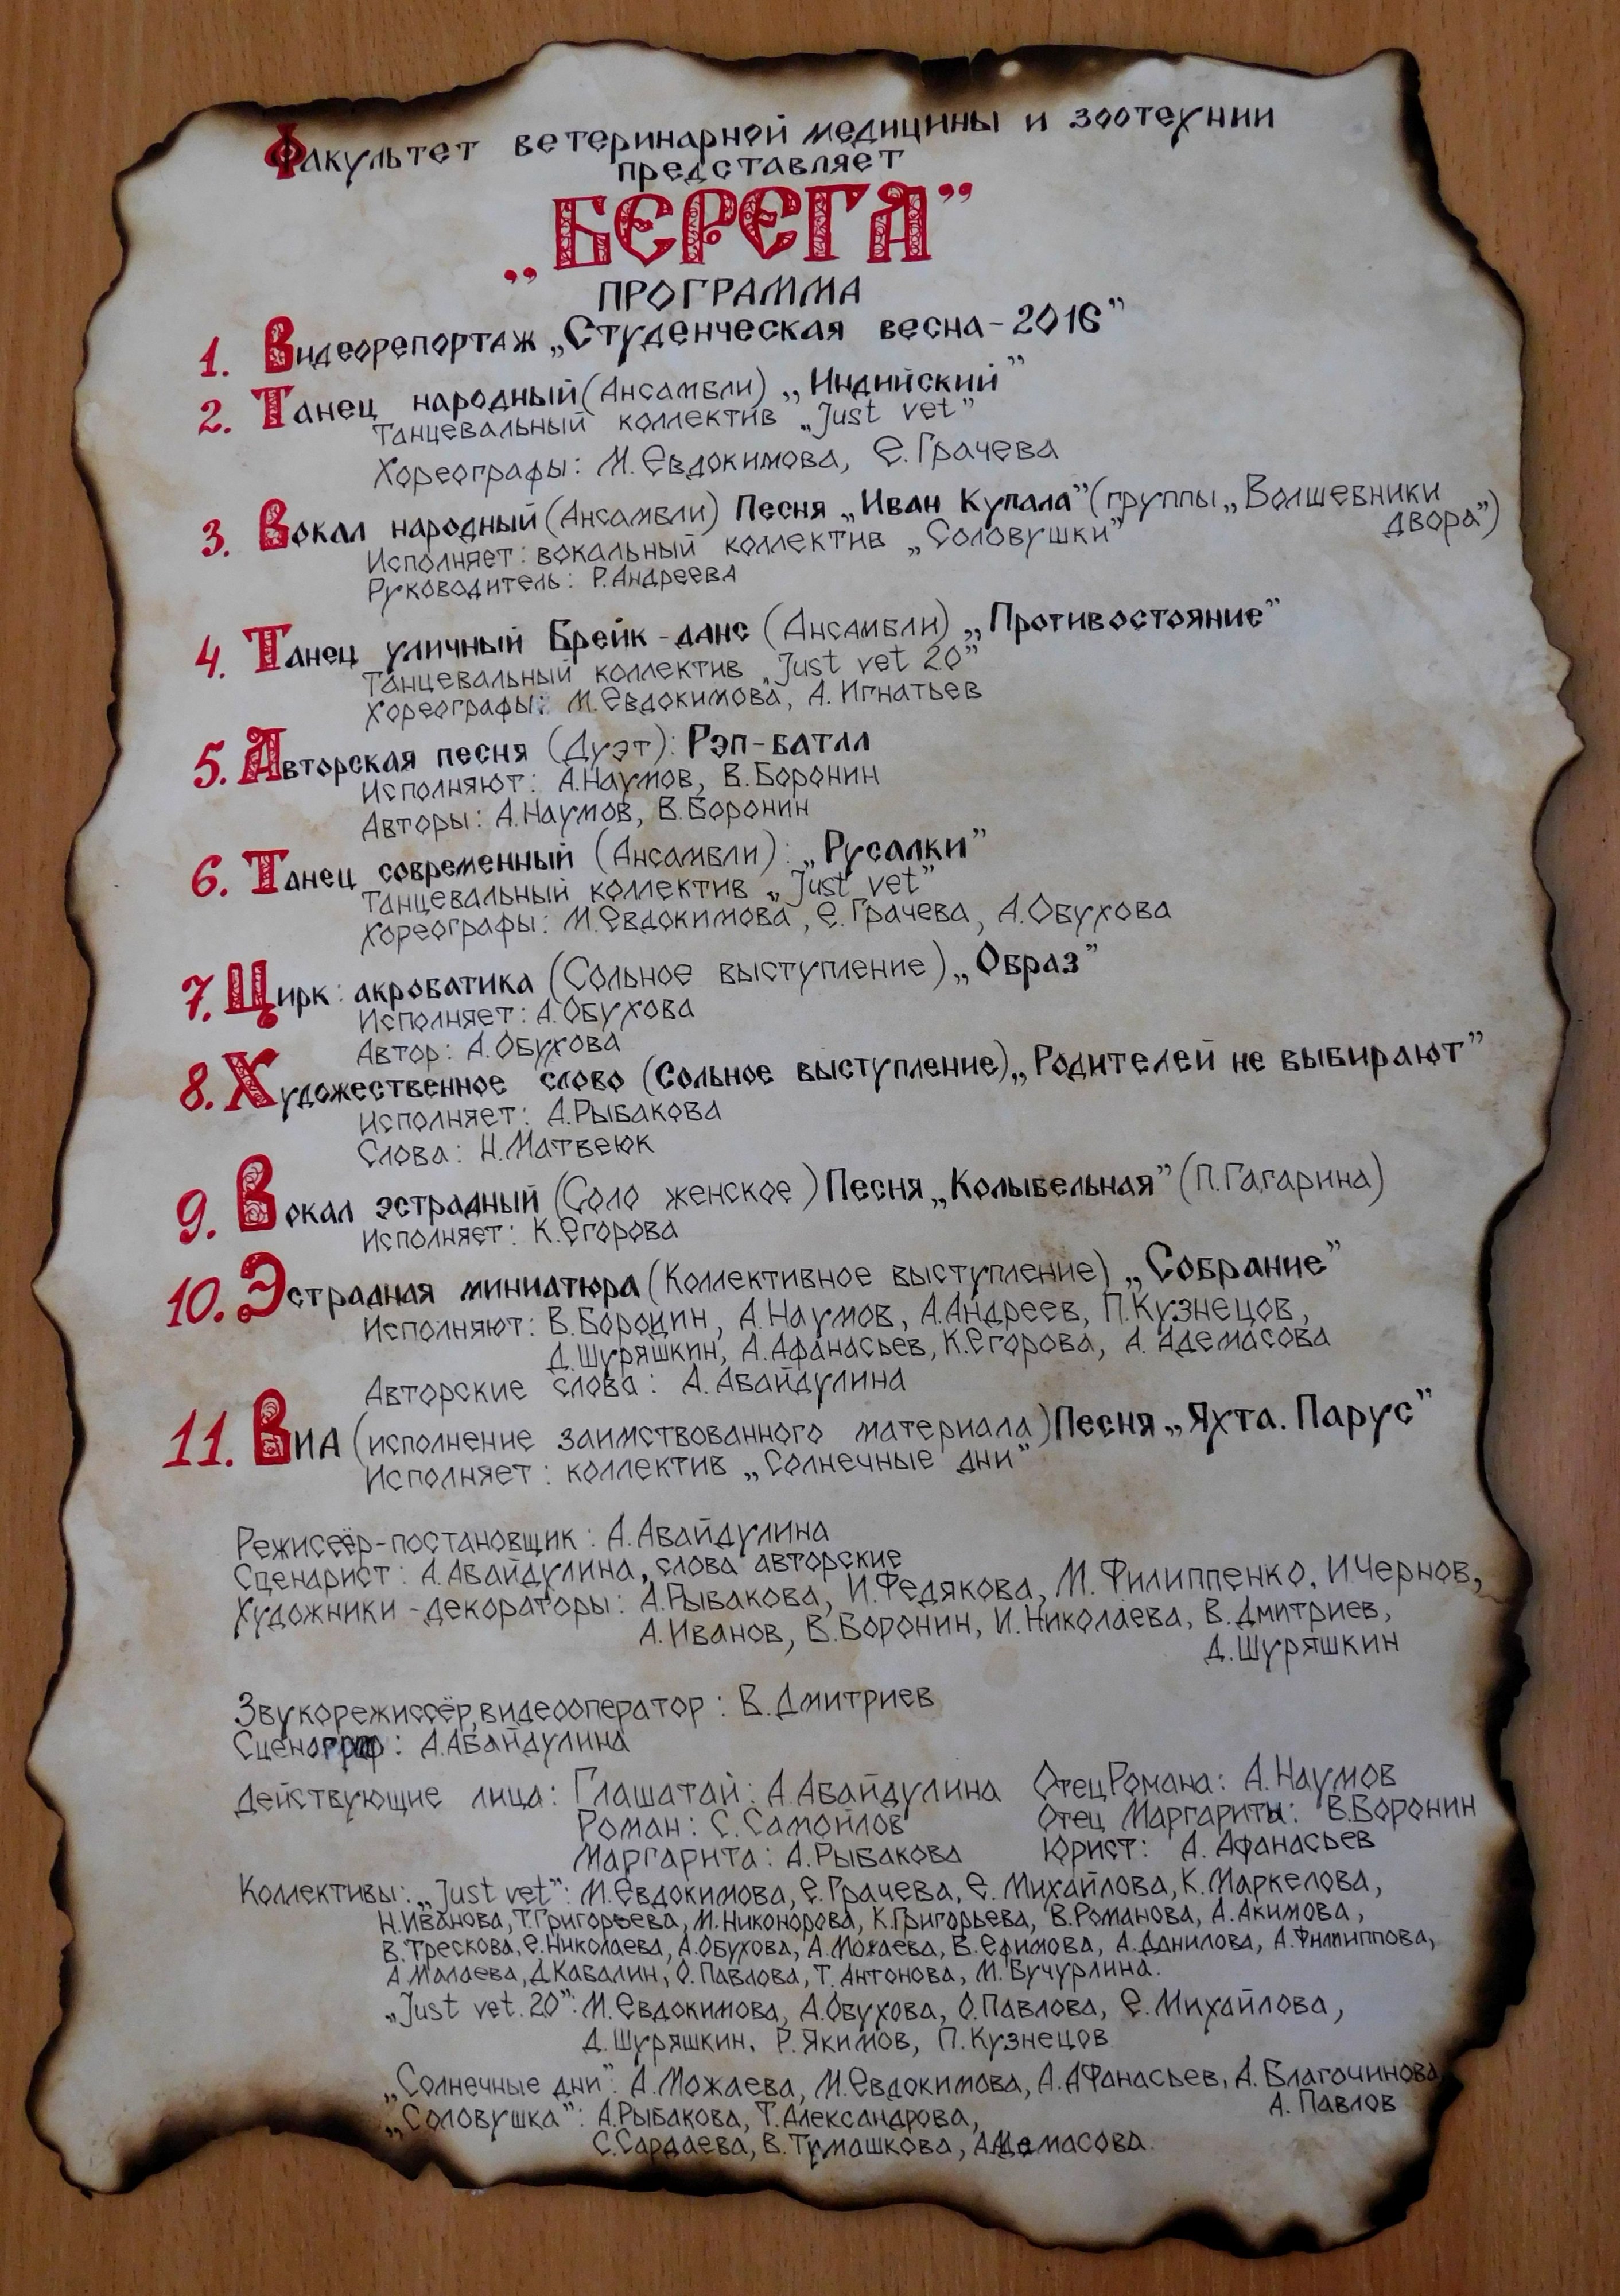 Факультет ветеринарной медицины и зоотехнии
представляет
„БЕРЕГА”
ПРОГРАММА
1. Видеорепортаж „Студенческая весна-2016”
2. Танец народный (Ансамбли) „Индийский”
Танцевальный коллектив „Just vet”
Хореографы: М.Евдокимова, Е.Грачева
3. Вокал народный (Ансамбли) Песня „Иван Купала” (группы „Волшевники
двора”)
Исполняет: вокальный коллектив „Соловушки”
Руководитель: Р.Андреева
4. Танец уличный Брейк-данс (Ансамбли) „Противостояние”
Танцевальный коллектив „Just vet 2.0”
Хореографы: М.Евдокимова, А. Игнатьев
5. Авторская песня (Дуэт): Рэп-батлл
Исполняют: А.Наумов, В.Воронин
Авторы: А.Наумов, В.Воронин
6. Танец современный (Ансамбли): „Русалки”
Танцевальный коллектив „Just vet”
Хореографы: М.Евдокимова, Е.Грачева, А.Обухова
7. Цирк: акробатика (Сольное выступление) „Образ”
Исполняет: А.Обухова
Автор: А.Обухова
8. Художественное слово (Сольное выступление) „Родителей не выбирают”
Исполняет: А.Рыбакова
Слова: Н.Матвеюк
9. Вокал эстрадный (Соло женское) Песня „Колыбельная” (П.Гагарина)
Исполняет: К.Егорова
10. Эстрадная миниатюра (Коллективное выступление) „Собрание”
Исполняют: В.Воронин, А.Наумов, А.Андреев, П.Кузнецов,
Д.Шуряшкин, А.Афанасьев, К.Егорова, А. Адемасова
Авторские слова: А. Абайдулина
11. ВИА (исполнение заимствованного материала) Песня „Яхта. Парус”
Исполняет: коллектив „Солнечные дни”
Режиссёр-постановщик: А.Абайдулина
Сценарист: А.Абайдулина, слова авторские
Художники-декораторы: А.Рыбакова, И.Федякова, М.Филиппенко, И.Чернов,
А.Иванов, В.Воронин, И.Николаева, В.Дмитриев,
Д.Шуряшкин
Звукорежиссёр, видеооператор: В.Дмитриев
Сценограф: А.Абайдулина
Действующие лица: Глашатай: А.Абайдулина Отец Романа: А.Наумов
Роман: С.Самойлов Отец Маргариты: В.Воронин
Маргарита: А.Рыбакова Юрист: А. Афанасьев
Коллективы: „Just vet”: М.Евдокимова, Е.Грачева, Е. Михайлова, К.Маркелова,
Н.Иванова, Т.Григорьева, М.Никонорова, К.Григорьева, В.Романова, А.Акимова,
В.Трескова, Е.Николаева, А.Обухова, А.Можаева, В.Ефимова, А.Данилова, А.Филлиппова,
А.Малаева, Д.Кабалин, О.Павлова, Т. Антонова, М.Бучурлина.
„Just vet. 2.0”: М.Евдокимова, А.Обухова, О.Павлова, Е.Михайлова,
Д.Шуряшкин, Р.Якимов, П.Кузнецов
„Солнечные дни”: А.Можаева, М.Евдокимова, А.Афанасьев, А.Благочинова,
А.Павлов
„Соловушка”: А.Рыбакова, Т.Александрова,
С.Сардаева, В.Тумашкова, А.Адемасова.